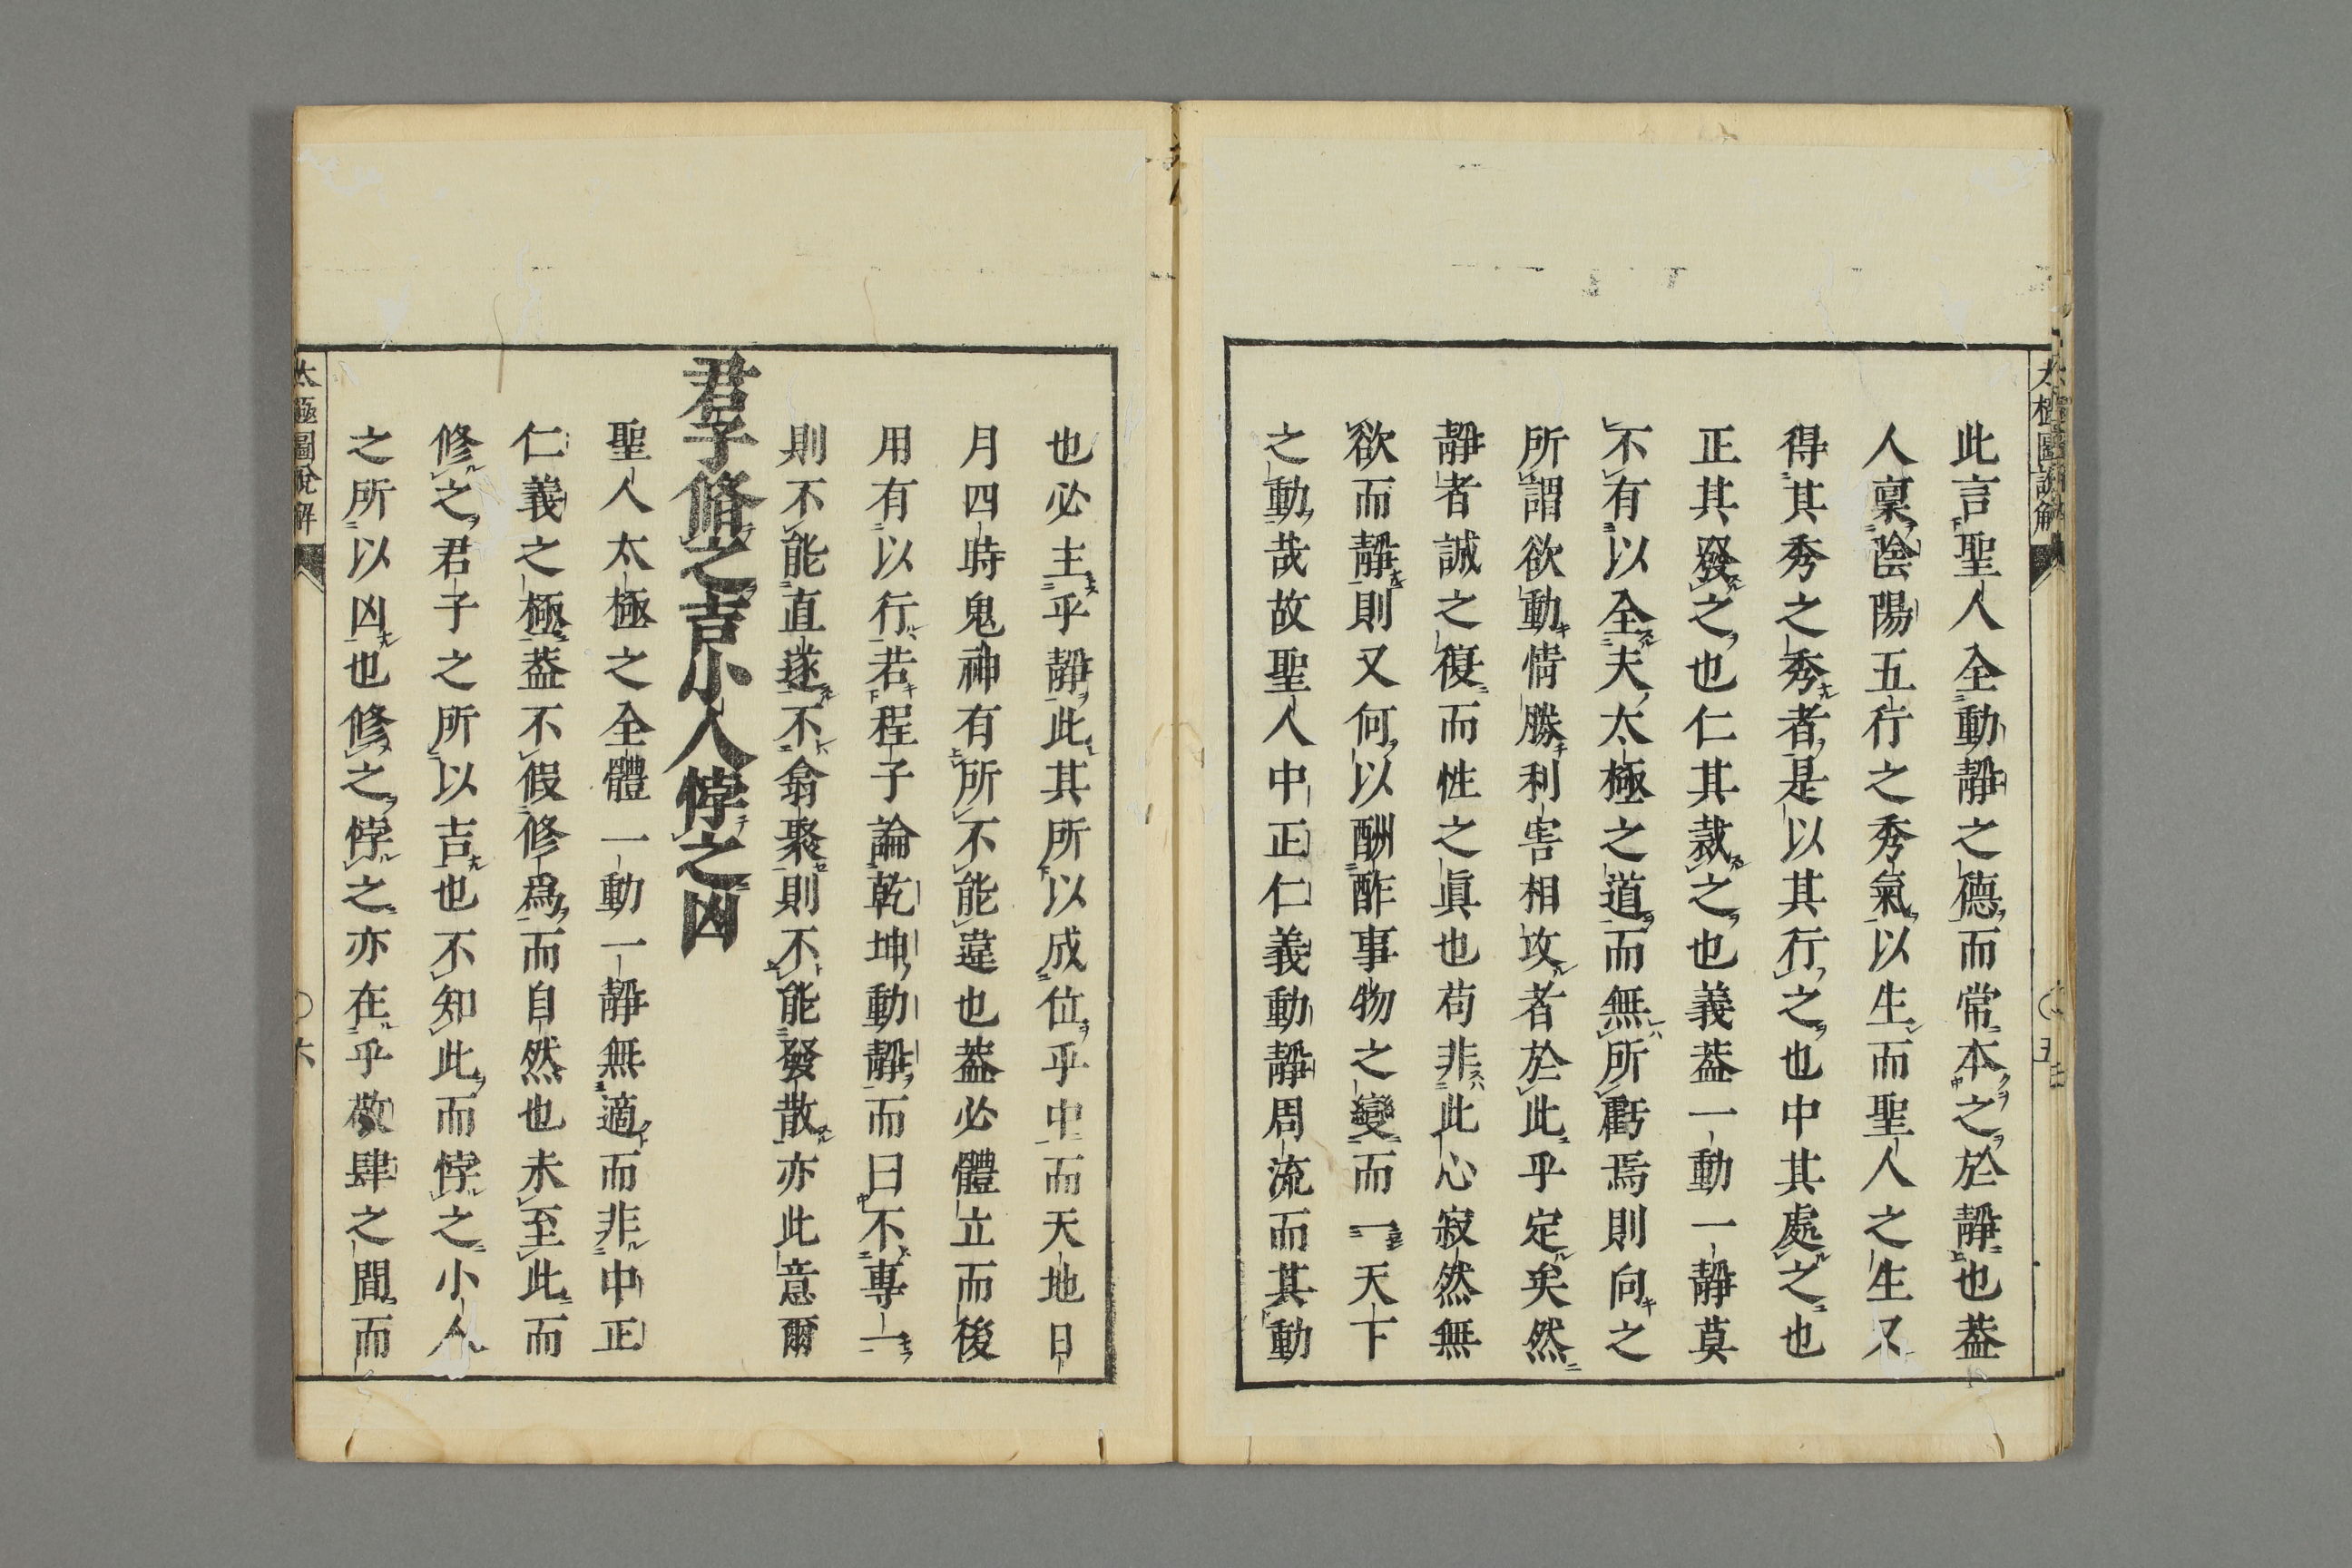 此言聖人全動靜之德而常本之於靜也葢
人稟陰陽五行之秀氣以生而聖人之生又
得其秀之秀者是以其行之也中其處之也
正其發之也仁其裁之也義葢一動一靜莫
不有以全夫太極之道而無所虧焉則向之
所謂欲動情勝利害相攻者於此乎定矣然
靜者誠之復而性之眞也苟非此心寂然無
欲而靜則又何以酬酢事物之變而一天下
之動哉故聖人中正仁義動靜周流而其動
也必主乎靜此其所以成位乎中而天地日
月四時鬼神有所不能違也葢必體立而後
用有以行若程子論乾坤動靜而曰不專一
則不能直遂不翕聚則不能發散亦此意爾
君子修之吉小人悖之凶
聖人太極之全體一動一靜無適而非中正
仁義之極葢不假修爲而自然也未至此而
修之君子之所以吉也不知此而悖之小人
之所以凶也修之悖之亦在乎敬肆之間而
太極圖說解
六